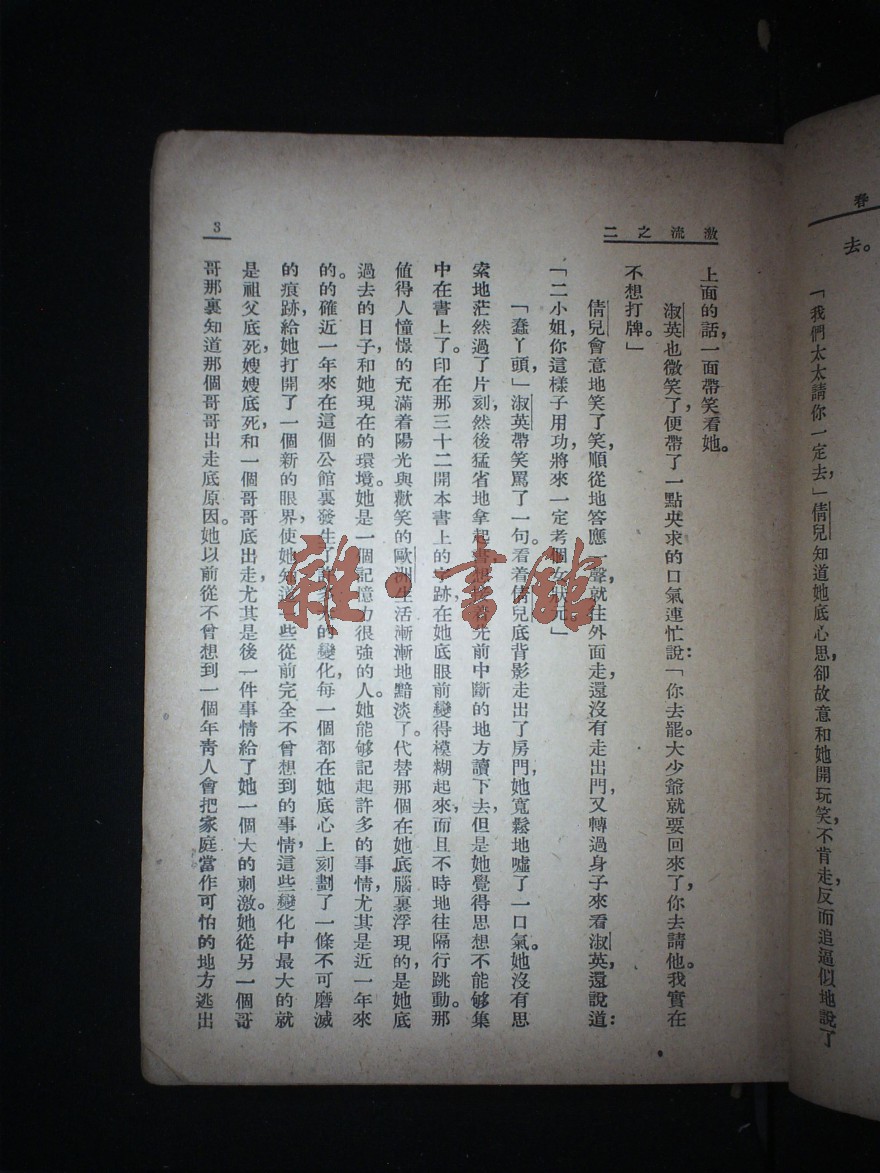 春
去。
「我們太太請你一定去」倩兒知道她底心思，卻故意和她開玩笑，不肯走，反而追逼似地說了
激流之二
上面的話，一面帶笑看她。
淑英也微笑了，便帶了一點央求的口氣連忙說：「你去罷。大少爺就要回來了，你去請他。我實在
不想打牌。」
倩兒會意地笑了笑，順從地答應一聲，就往外面走，還沒有走出門，又轉過身子來看淑英，還說道：
「二小姐，你這樣子用功，將來一定考個女狀元。」
「蠢丫頭，」淑英帶笑罵了一句。看着倩兒底背影走出了房門，她寬鬆地噓了一口氣。她沒有思
索地茫然過了片刻，然後猛省地拿起書想接着先前中斷的地方讀下去，但是她覺得思想不能够集
中在書上了。印在那三十二開本書上的字跡，在她底眼前變得模糊起來，而且不時地往隔行跳動。那
值得人憧憬的充滿着陽光與歡笑的歐洲生活漸漸地黯淡了。代替那個在她底腦裏浮現的，是她底
過去的日子和她現在的環境。她是一個記憶力很強的人。她能够記起許多的事情，尤其是近一年來
的。的確近一年來在這個公館裏發生了的變化，每一個都在她底心上刻劃了一條不可磨滅
的痕跡，給她打開了一個新的眼界，使她知道一些從前完全不曾想到的事情，這些變化中最大的就
是祖父底死，嫂嫂底死，和一個哥哥底出走，尤其是後一件事情給了她一個大的刺激。她從另一個哥
哥那裏知道那個哥哥出走底原因。她以前從不曾想到一個年靑人會把家庭當作可怕的地方逃出
3
雜·書館